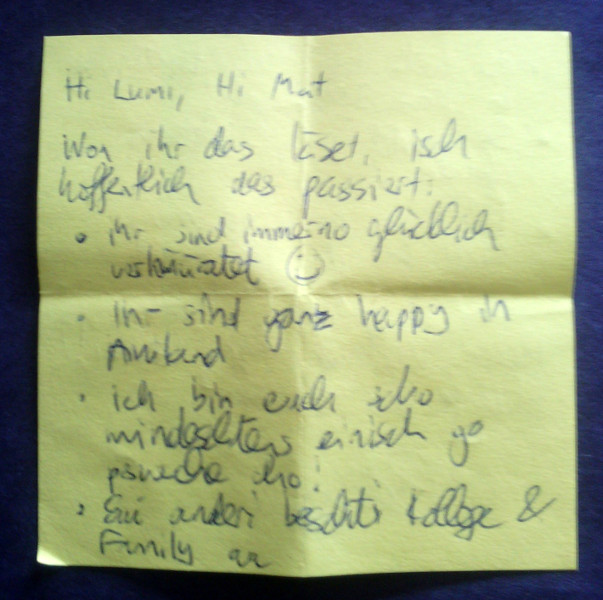 Hi Lumi, Hi Mat
Wen ihr das läset, isch
hoffentlich das passiert:
• ihr sind immerno glücklich
verhüratet ☺
• Ihr sind ganz happy in
• ich bin euch scho
mindestens einisch go
bsueche cho!
• Eui anderi beschti Kollege &
Family au